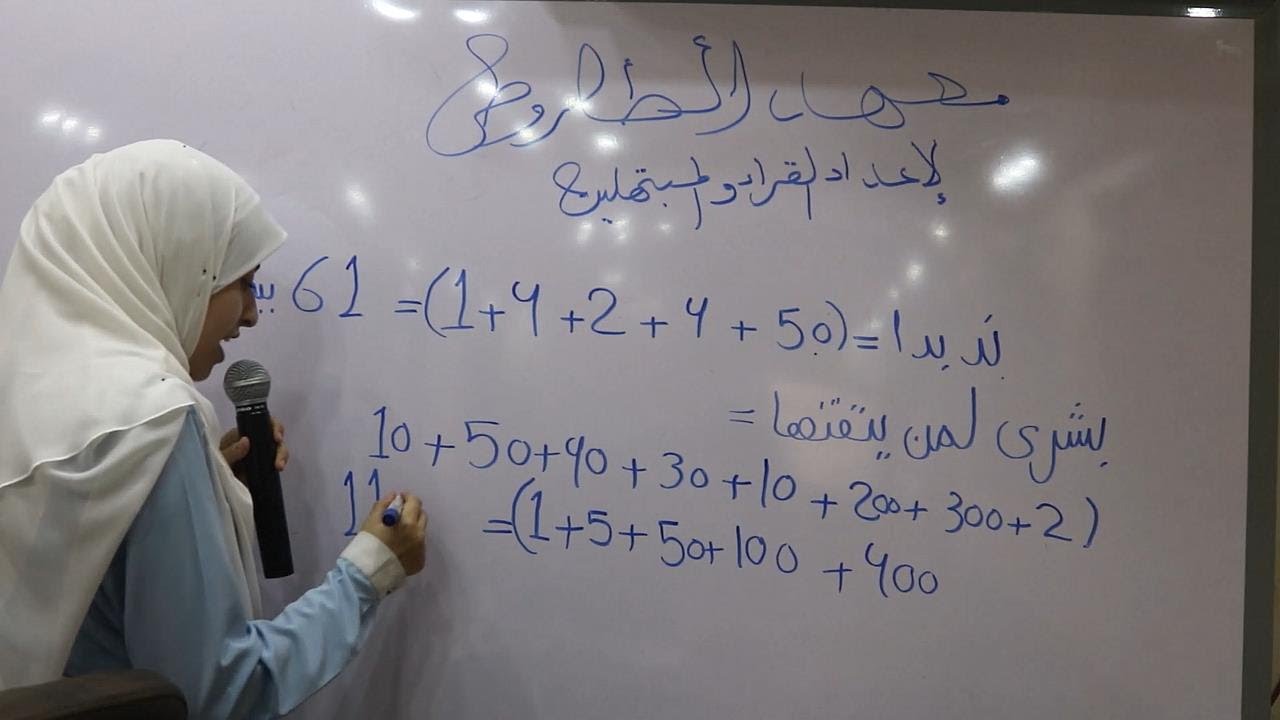 معهد الطاروطي
لإعداد القراء والمبتهلين
نبدا = (50 + 4 + 2 + 4 + 1) = 61 بيـ
بشرى لمن يتقنها =
(2 + 300 + 200 + 10 + 30 + 40 + 50 + 10
400 + 100 + 50 + 5 + 1) = 11